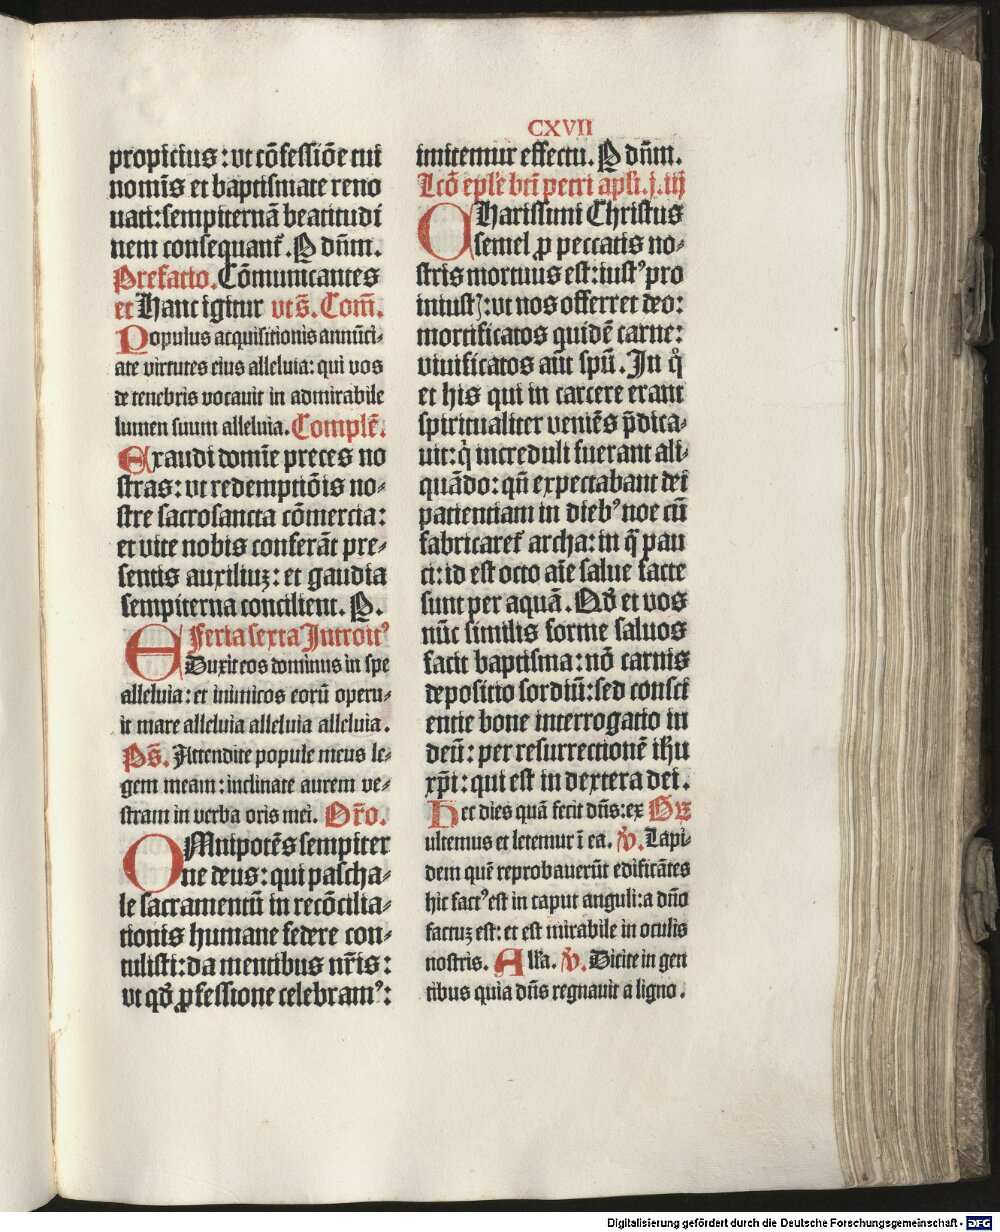 CXVII
propicius: vt cōfessiōe tui
nomīs et baptismate reno
uati: sempiternā beatitudi
nem consequant᷑. P dn̄m.
Prefatio. Cōmunicantes
et Hanc igitur vt s̄. Com̄.
Populus acquisitionis annūci⸗
ate virtutes eius alleluia: qui vos
de tenebris vocauit in admirabile
lumen suum alleluia. Complē.
Exaudi domīe preces no
stras: vt redemptiōis no⸗
stre sacrosancta cōmercia:
et vite nobis conferāt pre⸗
sentis auxiliuz: et gaudia
sempiterna concilient. P.
Feria sexta Introitꝰ
EDuxit eos dominus in spe
alleluia: et inimicos eorū operu⸗
it mare alleluia alleluia alleluia.
Ps̄. Attendite popule meus le⸗
gem meam: inclinate aurem ve⸗
stram in verba oris mei. Or̄o.
OMnipotēs sempiter
ne deus: qui pascha⸗
le sacramentū in recōcilia⸗
tionis humane federe con⸗
tulisti: da mentibus nr̄is:
vt qd̄ ꝓfessione celebramꝰ:
imitemur effectu. P dn̄m.
Lcō ep̄le bt̄i petri apl̄i. j. iij
CHarissimi Christus
semel ꝓ peccatis no⸗
stris mortuus est: iustꝰ pro
iniustꝭ: vt nos offerret deo:
mortificatos quidē carne:
viuificatos aūt spū. In qͦ
et his qui in carcere erant
spiritualiter veniēs p̄dica⸗
uit: qͥ increduli fuerant ali⸗
quādo: qn̄ expectabant dei
patientiam in diebꝰ noe cū
fabricaret᷑ archa: in qͣ pau
ci: id est octo aīe salue facte
sunt per aquā. Qd̄ et vos
nūc similis forme saluos
facit baptisma: nō carnis
depositio sordiū: sed consci
entie bone interrogatio in
deū: per resurrectionē ih̄u
xp̄i: qui est in dextera dei.
Hec dies quā fecit dn̄s: ex Gr̄
ultemus et letemur ī ea. ℣. Lapi⸗
dem quē reprobauerūt edificātes
hic factꝰ est in caput anguli: a dn̄o
factuz est: et est mirabile in oculis
nostris. All'a. ℣. Dicite in gen
tibus quia dn̄s regnauit a ligno.
Digitalisierung gefördert durch die Deutsche Forschungsgemeinschaft - DFG